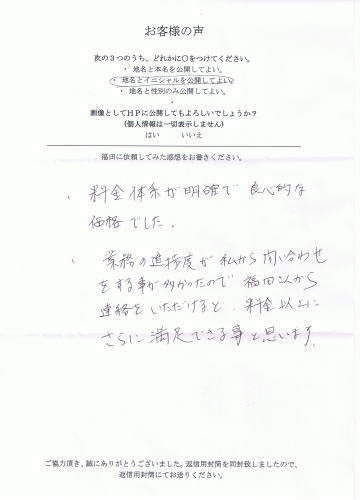 お客様の声
次の３つのうち、どれかに○をつけてください。
・ 地名と本名を公開してよい。
・ 地名とイニシャルを公開してよい。
・ 地名と性別のみ公開してよい。
・
画像としてＨＰに公開してもよろしいでしょうか？
(個人情報は一切表示しません)
はい　　いいえ
福田に依頼してみた感想をお書きください。
、 料金体系が明確で良心的な
価格でした。
、 業務の進捗度が私から問い合わせ
をする事が多かったので福田さんから
連絡をいただけると、料金以上に
さらに満足できる事と思います。
ご協力頂き、誠にありがとうございました。返信用封筒を同封致しましたので、
返信用封筒にてお送りください。